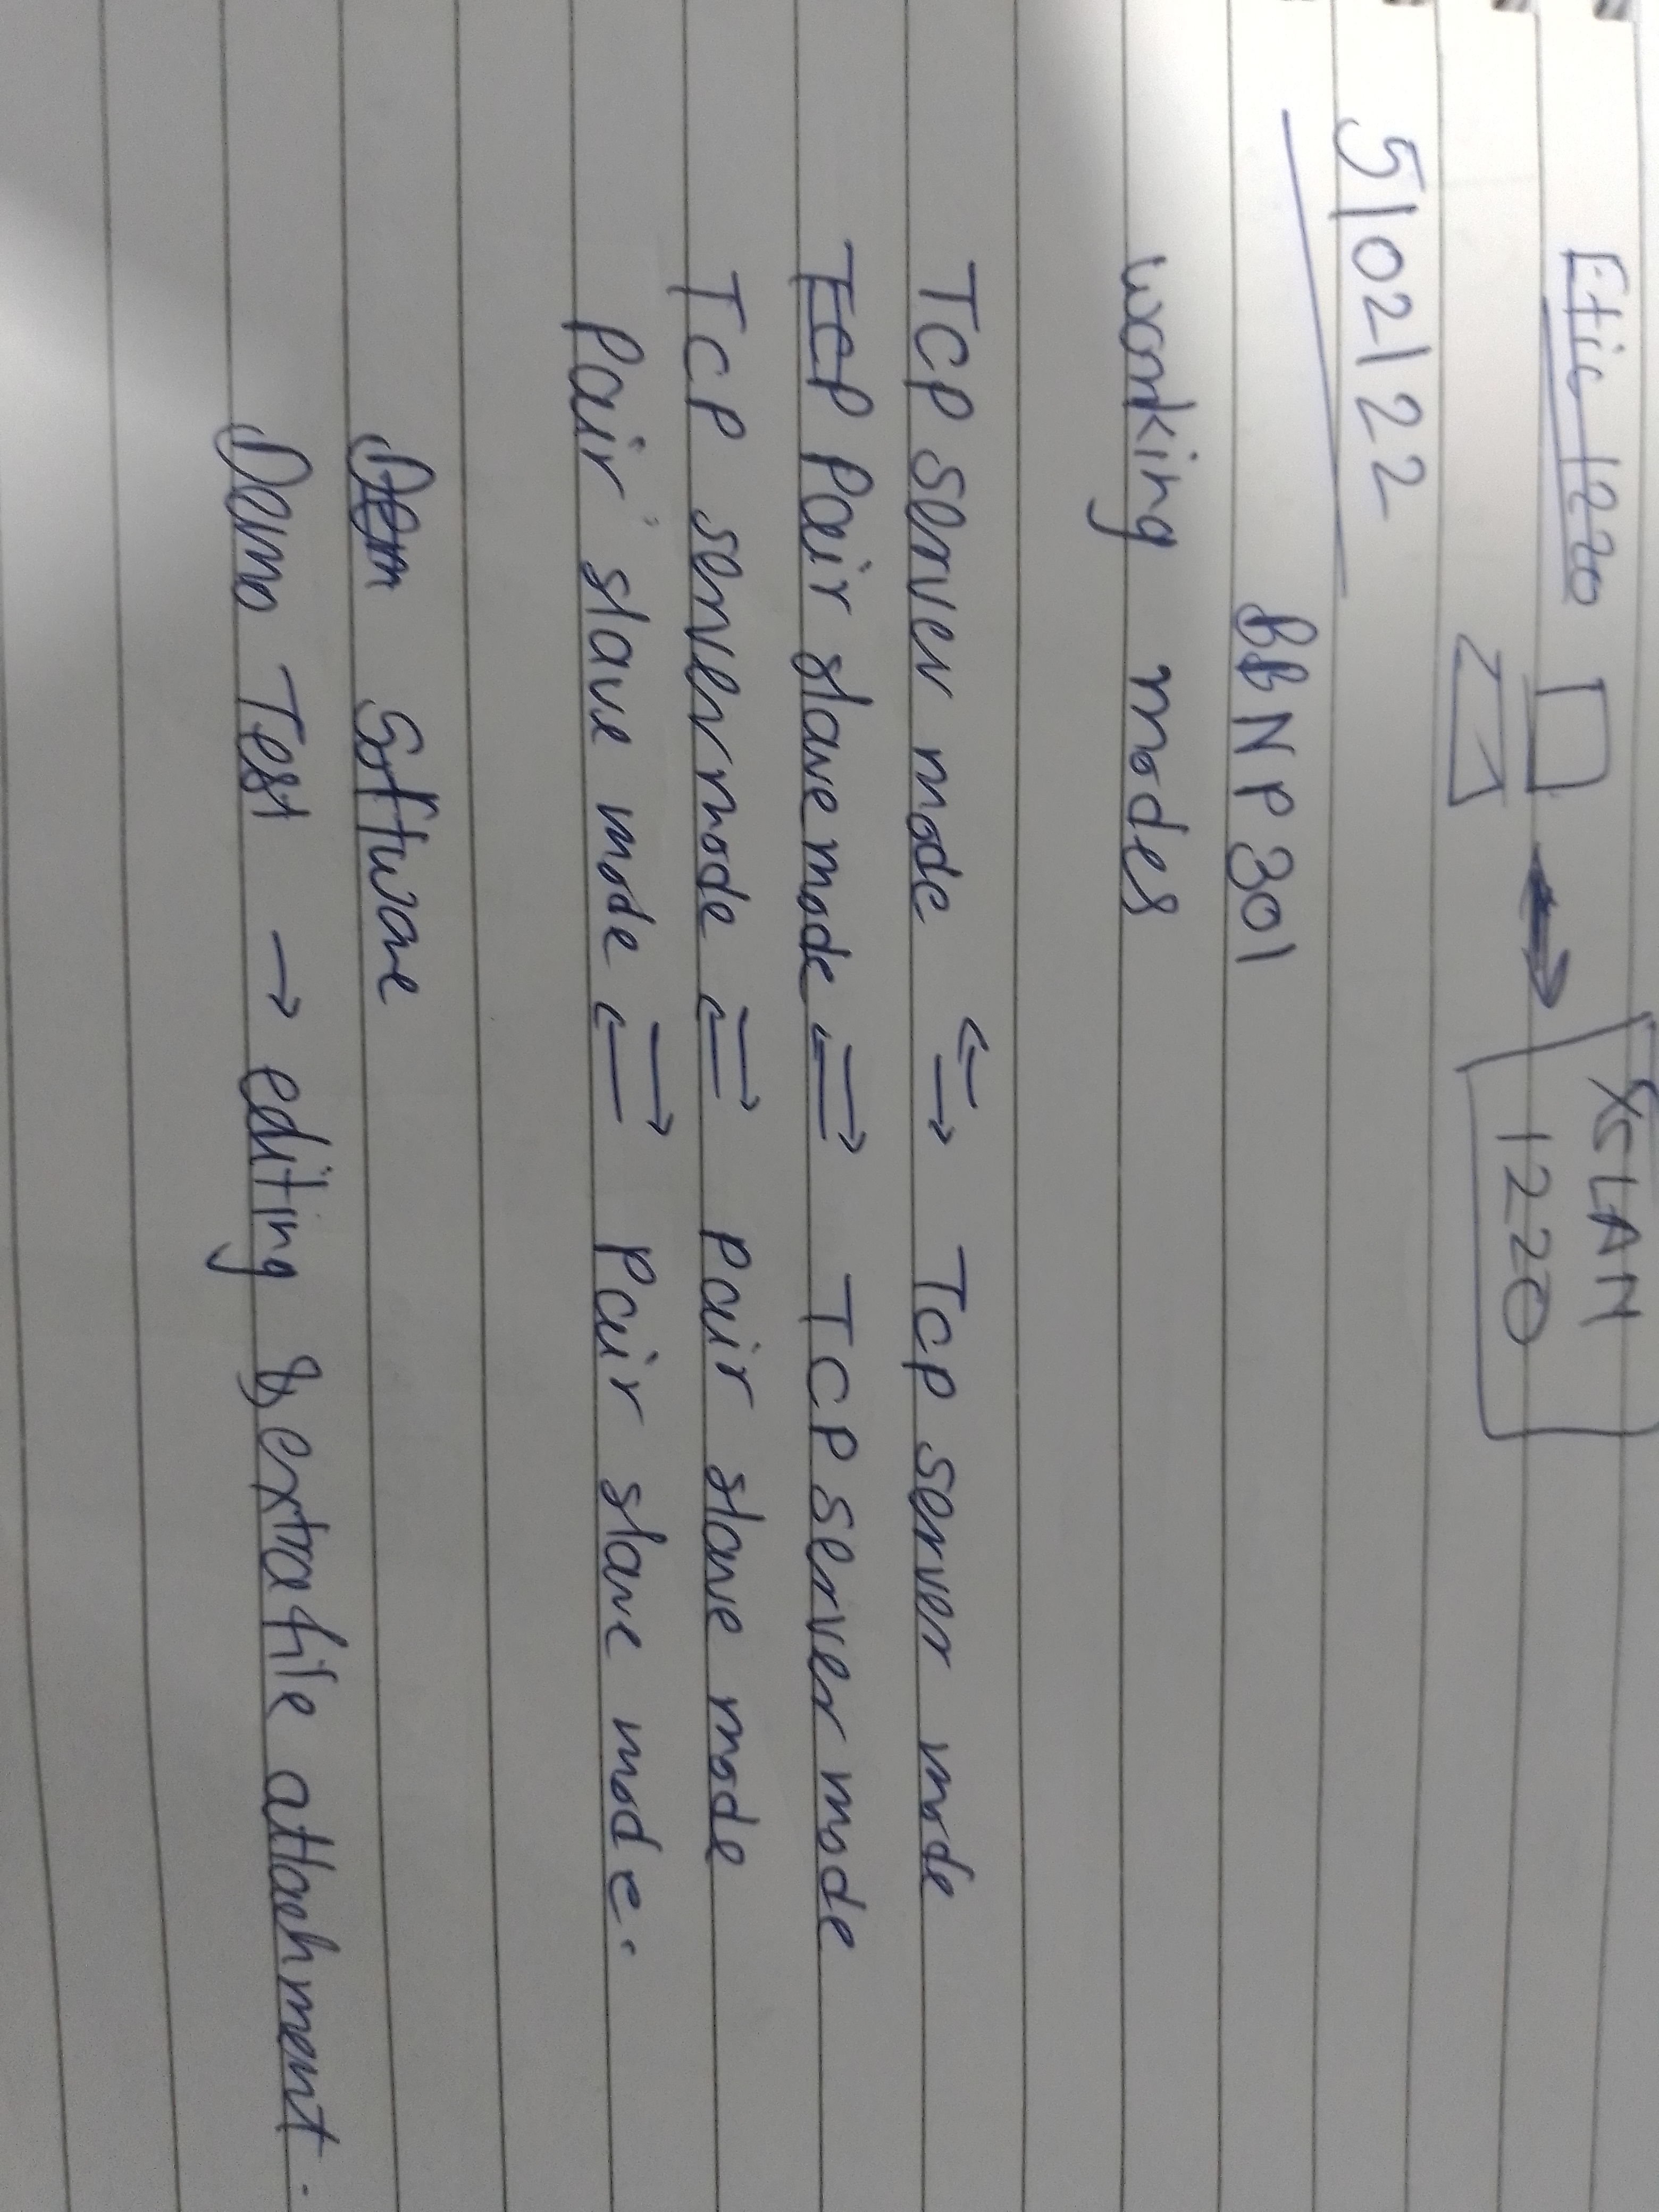 Etic 1220
XSLAN
1220
5/02/22
BBNP301
working modes
TCP server mode ⇆ TCP server mode
TCP Pair slave mode ⇆ TCP server mode
TCP server mode ⇆ Pair slave mode
Pair slave mode ⇆ Pair slave mode.
Software
Demo Test → editing & extra file attachment.